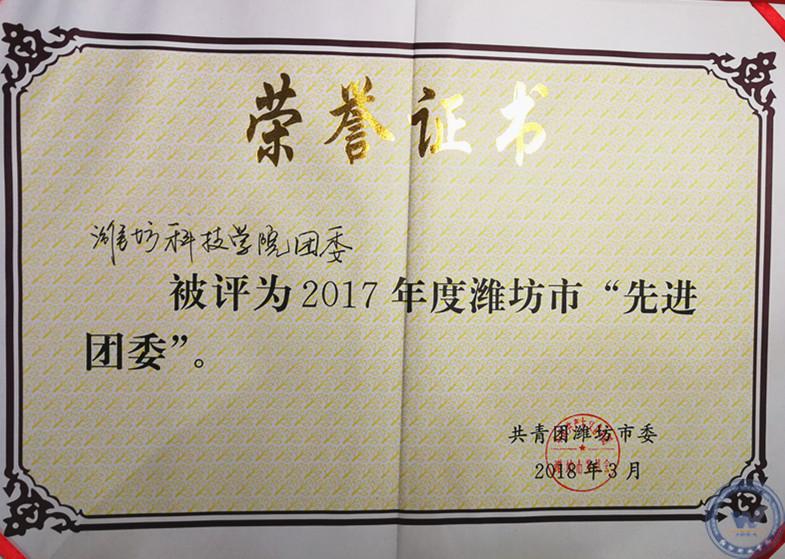 荣誉证书
潍坊科技学院团委
被评为2017年度潍坊市“先进
团委”。
共青团潍坊市委
2018年3月